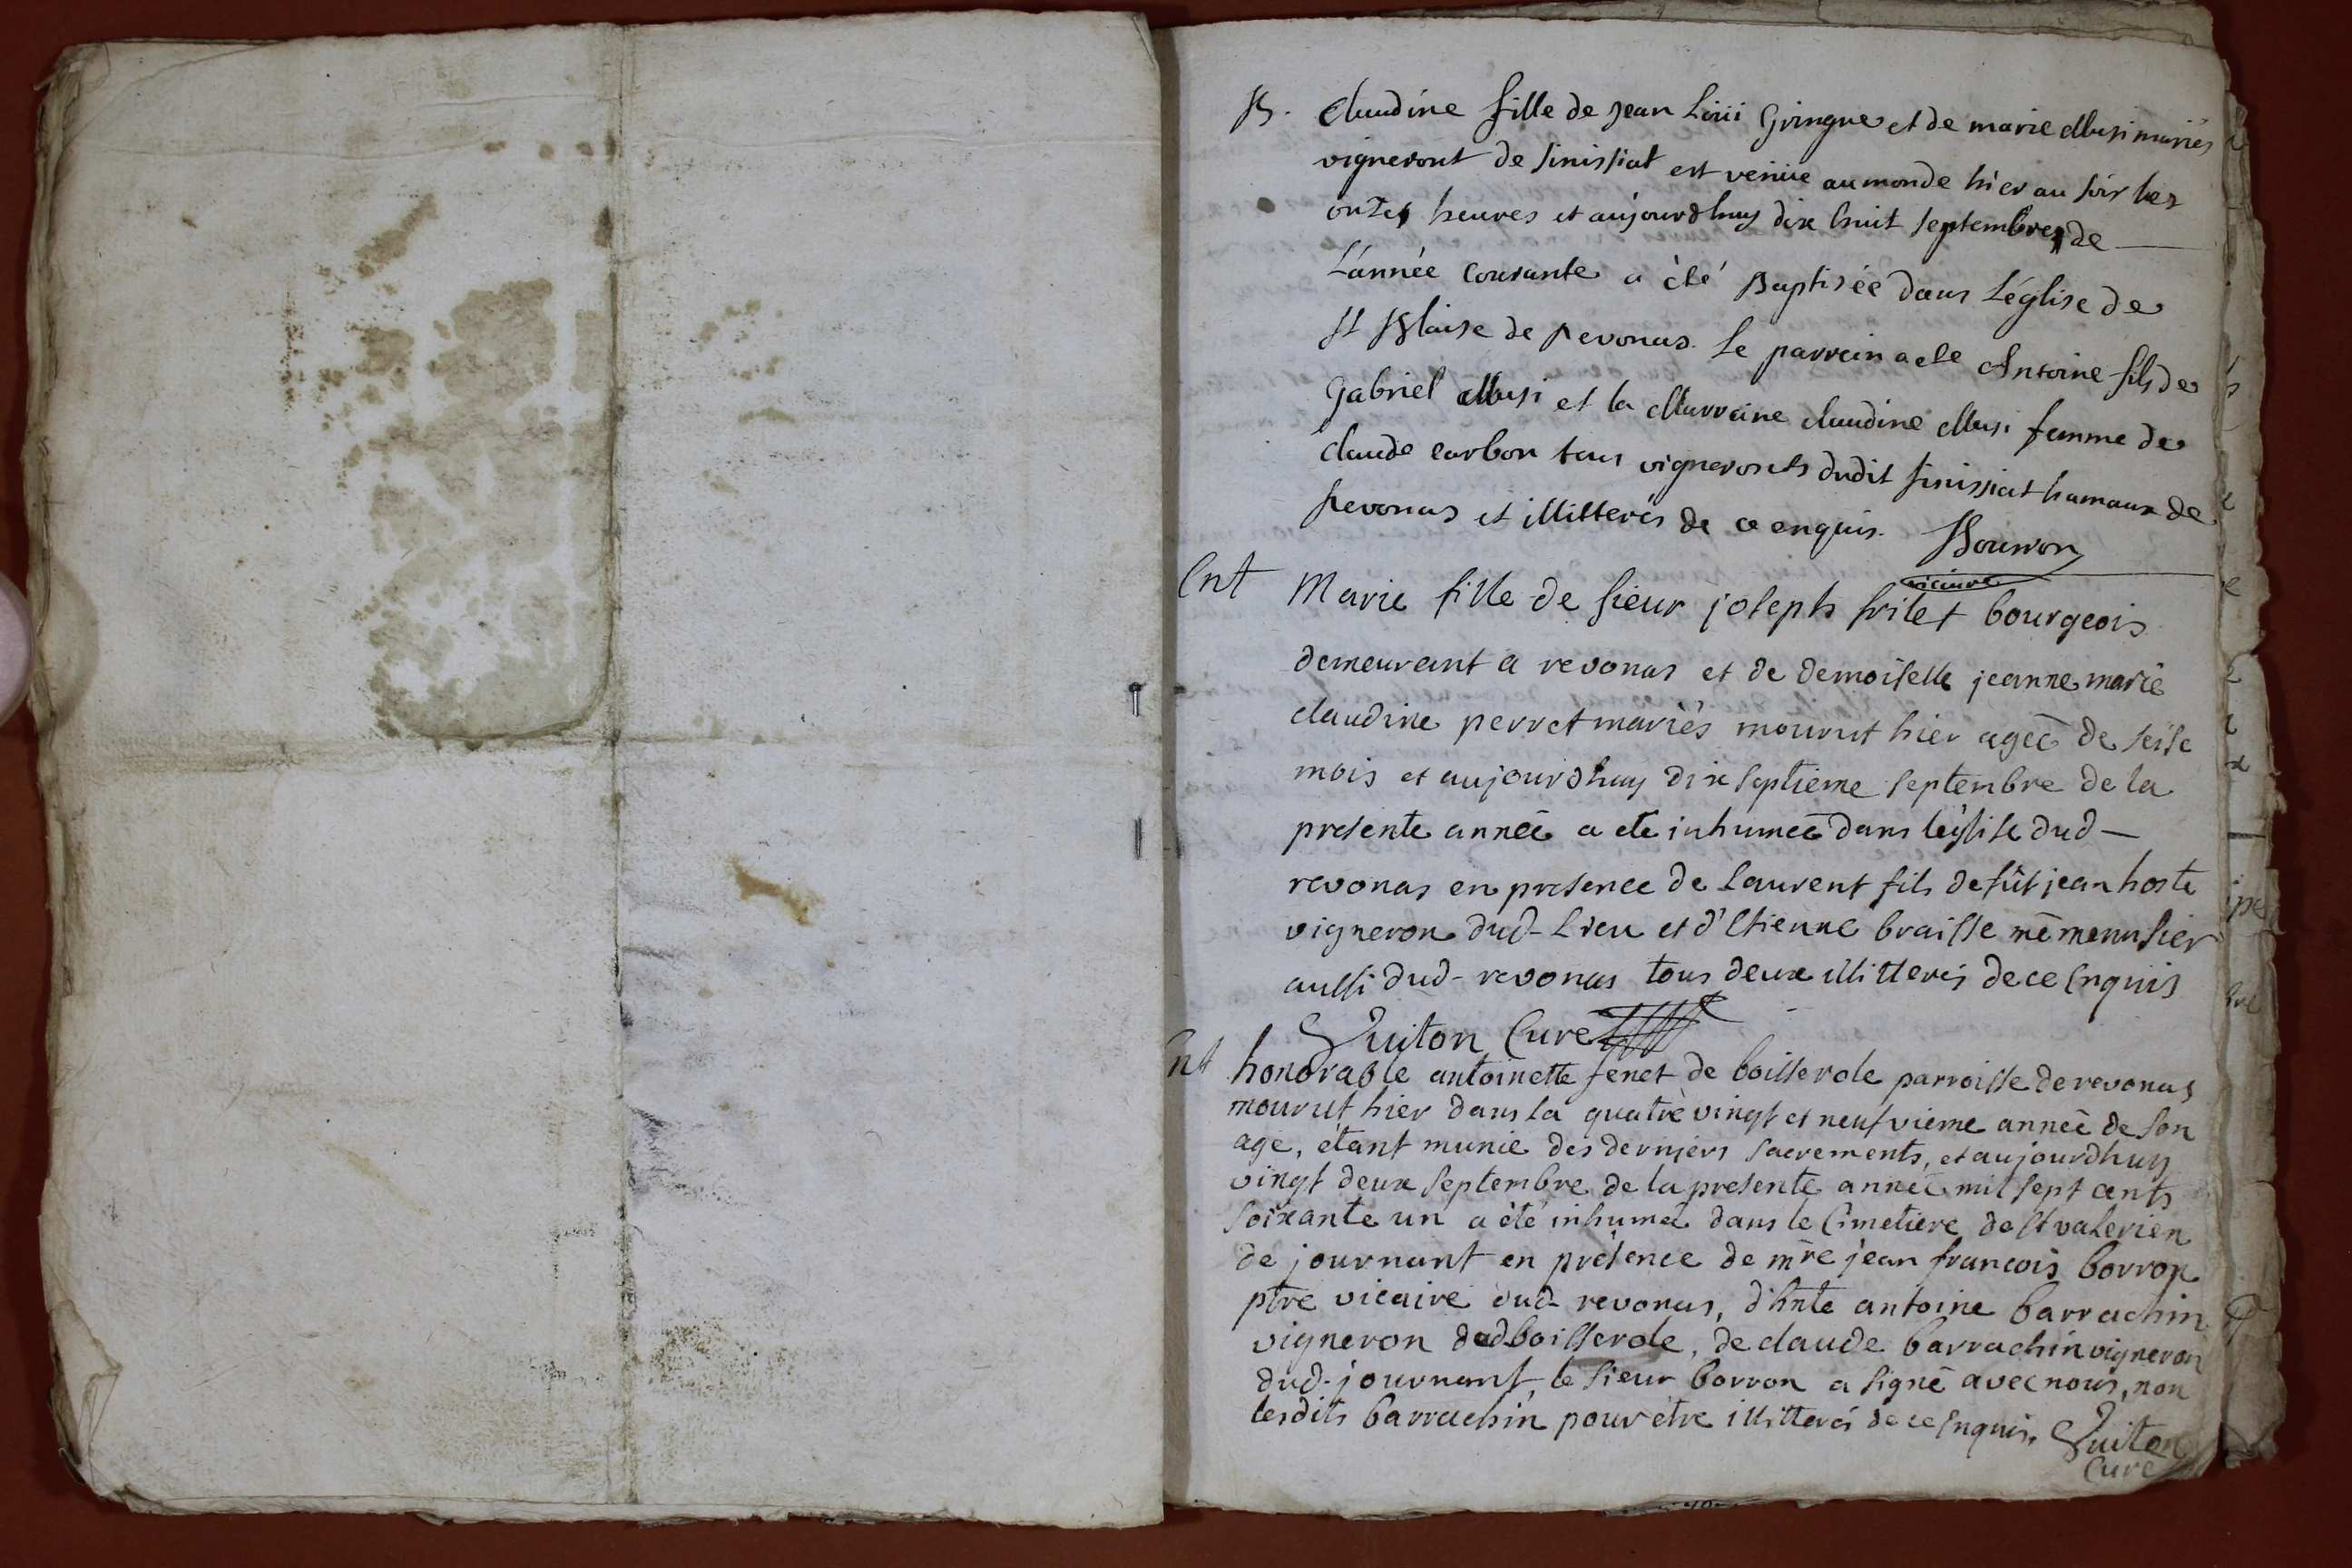 B. Claudine fille de Jean Loüi Gringue et de marie Musi mariés
vigneront de sinissiat est venüe au monde hier au soir les
onzes heures et aujourdhuy dix huit septembre de
L'année Courante a été Baptisée dans L'église de
St Blaise de Revonas. Le parrein a ete Antoine fils de
Gabriel Musi et la Marreine claudine Musi femme de
claude carbon tous vigneronts dudit sinissiat hamaux de
Revonas et illitterés de ce enquis. Bourron
vicaire
Ent Marie fille de sieur joseph frilet bourgeois
demeurant a revonas et de demoiselle jeanne marie
claudine perret mariés mourut hier agée de seise
mois et aujourdhuy dix septieme septembre de la
presente année a ete inhumeé dans l'église dud-
revonas en presence de Laurent fils de fût jean hoste
vigneron dud- Lieu et d'Etienne braisse me menusier
aussi dud- revonas tous deux illitterés de ce Enquis
Guiton Curé
Ent honorable antoinette fenet de boisserole parroisse de revonas
mourut hier dans la quatre vingt et neufvieme année de son
age, étant munie des derniers sacrements, et aujourdhuy
vingt deux septembre de la presente année mil sept cents
soixante un a été inhumeé dans le Cimetiere de St valerien
de journant en présence de mre jean francois borron
ptre vicaire dud- revonas, d'hnte antoine barrachin
vigneron dud boisserole, de claude barrachin vigneron
dud- journant, le sieur borron a signé avec nous, non
lesdits barrachin pour etre illitterés de ce Enquis. Guiton
Curé